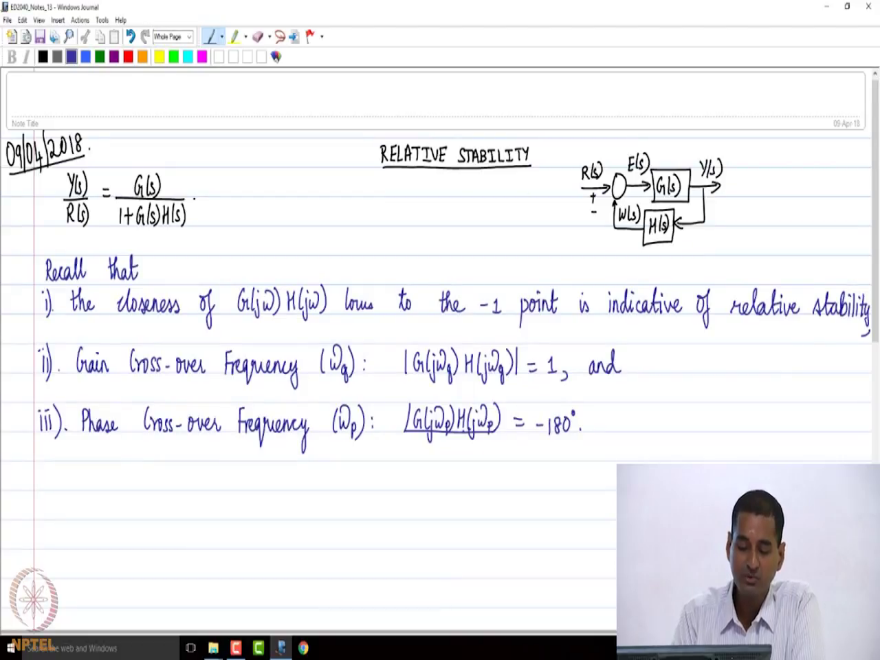 ED2040_Notes_13 - Windows Journal
File Edit View Insert Actions Tools Help
Whole Page
B I
Note Title
09-Apr-18
09/04/2018.
RELATIVE STABILITY
Y(s)/R(s) = G(s)/(1+G(s)H(s)).
R(s) + - E(s) G(s) Y(s)
W(s) H(s)
Recall that
i). the closeness of G(jω) H(jω) locus to the -1 point is indicative of relative stability,
ii). Gain Cross-over Frequency (ωg): |G(jωg) H(jωg)| = 1, and
iii). Phase Cross-over Frequency (ωp): ∠G(jωp)H(jωp) = -180°.
NPTEL
the web and Windows